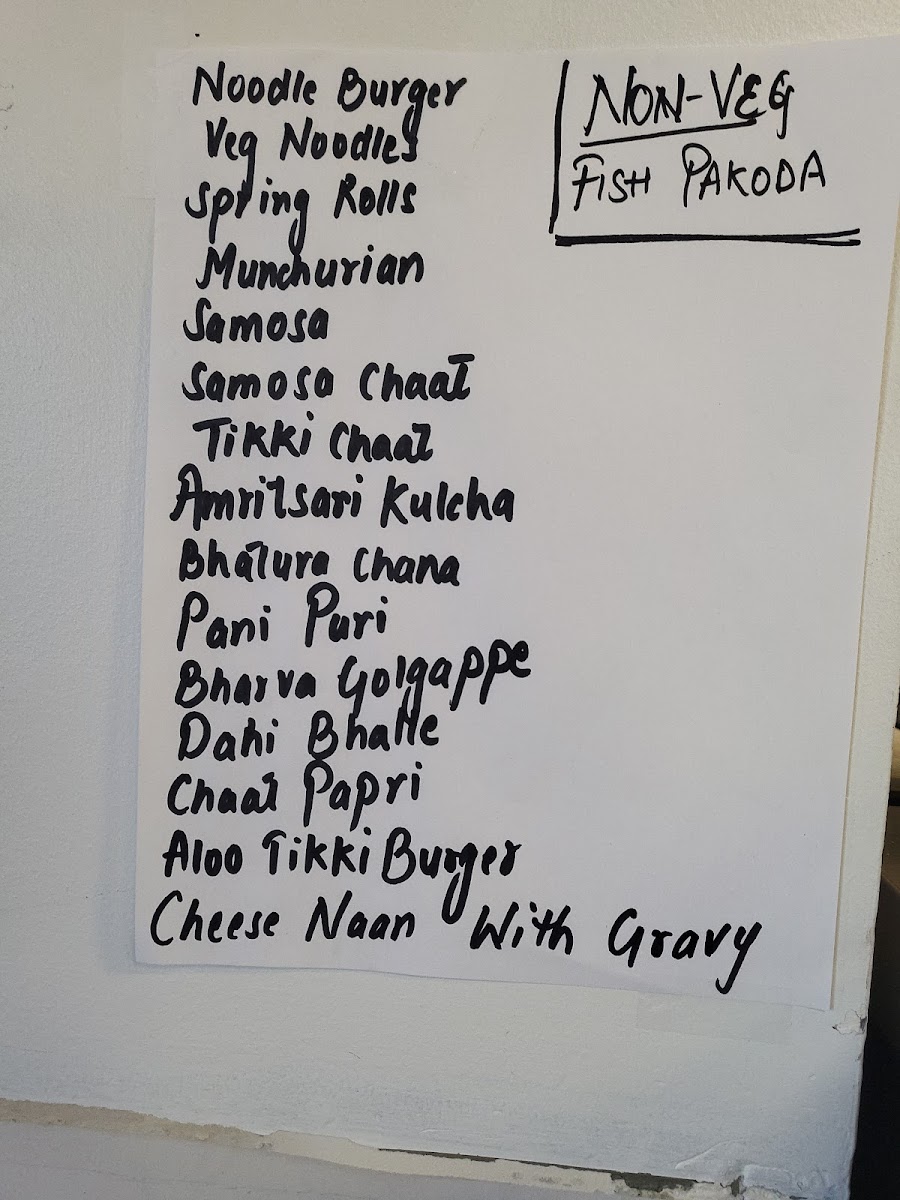 Noodle Burger
Veg Noodles
Spring Rolls
Munchurian
Samosa
Samosa Chaat
Tikki Chaat
Amritsari Kulcha
Bhatura Chana
Pani Puri
Bharva Golgappe
Dahi Bhalle
Chaat Papri
Aloo Tikki Burger
Cheese Naan With Gravy
NON-VEG
FISH PAKODA